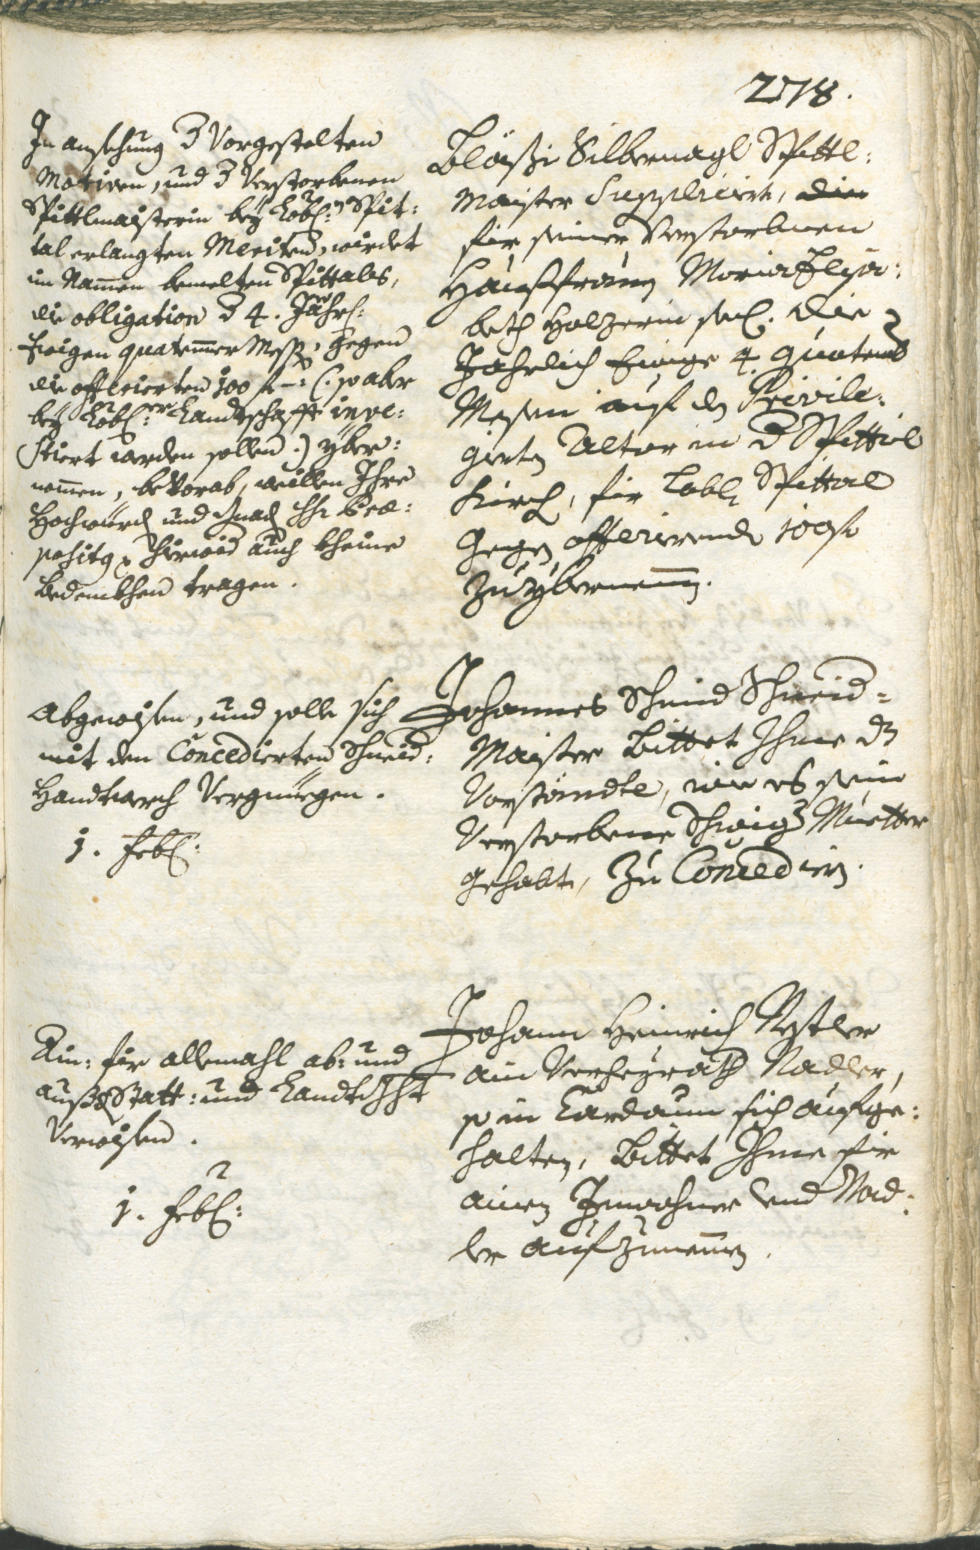 278.
In ansehung d Vorgestelten
Motiven, und d Verstorbenen
Spittlmaisterin bey Löbl: Spit:
tal erlangten Meriten, wirdet
im Nammen bemelten Spittals,
die obligation d 4. Jährl:
Ewigen quatemer Mess, gegen
die offerierten 100 f (: so aber
bey Löbl: Landtschafft inve:
stiert werden sollen :) yber:
nommen, bevorab, weillen Ihre
Hochwürd und Gnad Hr: Prae:
positq hierwid auch kheine
bedenkhen tragen.
Bläsi Silbernagl Spittl:
Maister Supplicirt, die
für seiner Verstorbnen
Haußfrauen Maria Elisa:
beth Holzerin seel. die
Jährlich Ewige 4. Quatemb
Messen auf den Privile:
girten Altar in d Spittal
Kirch, für Löbl Spittal
gegen offerierende 100 f
zu ybernemmen.
Abgewisen, und solle sich
mit den Concedierten Schneid:
Handtwerch Vergnüegen.
1. Feb:
Johannes Schmid Schneid=
Maister Bittet Ihme d
Vorständtl, wie es sein
Verstorbene Schwig Muetter
gehabt, zu Concediern.
Ain: für allemahl ab: und
auß Statt: und Landtgricht
Verwisen.
1. Feb:
Johann Heinrich Restler
ain Verheyrath Nadler,
so in Cardaun sich aufge:
halten, Bittet Ihme für
ainen Inwohner und Nad:
ler aufzunemmen.